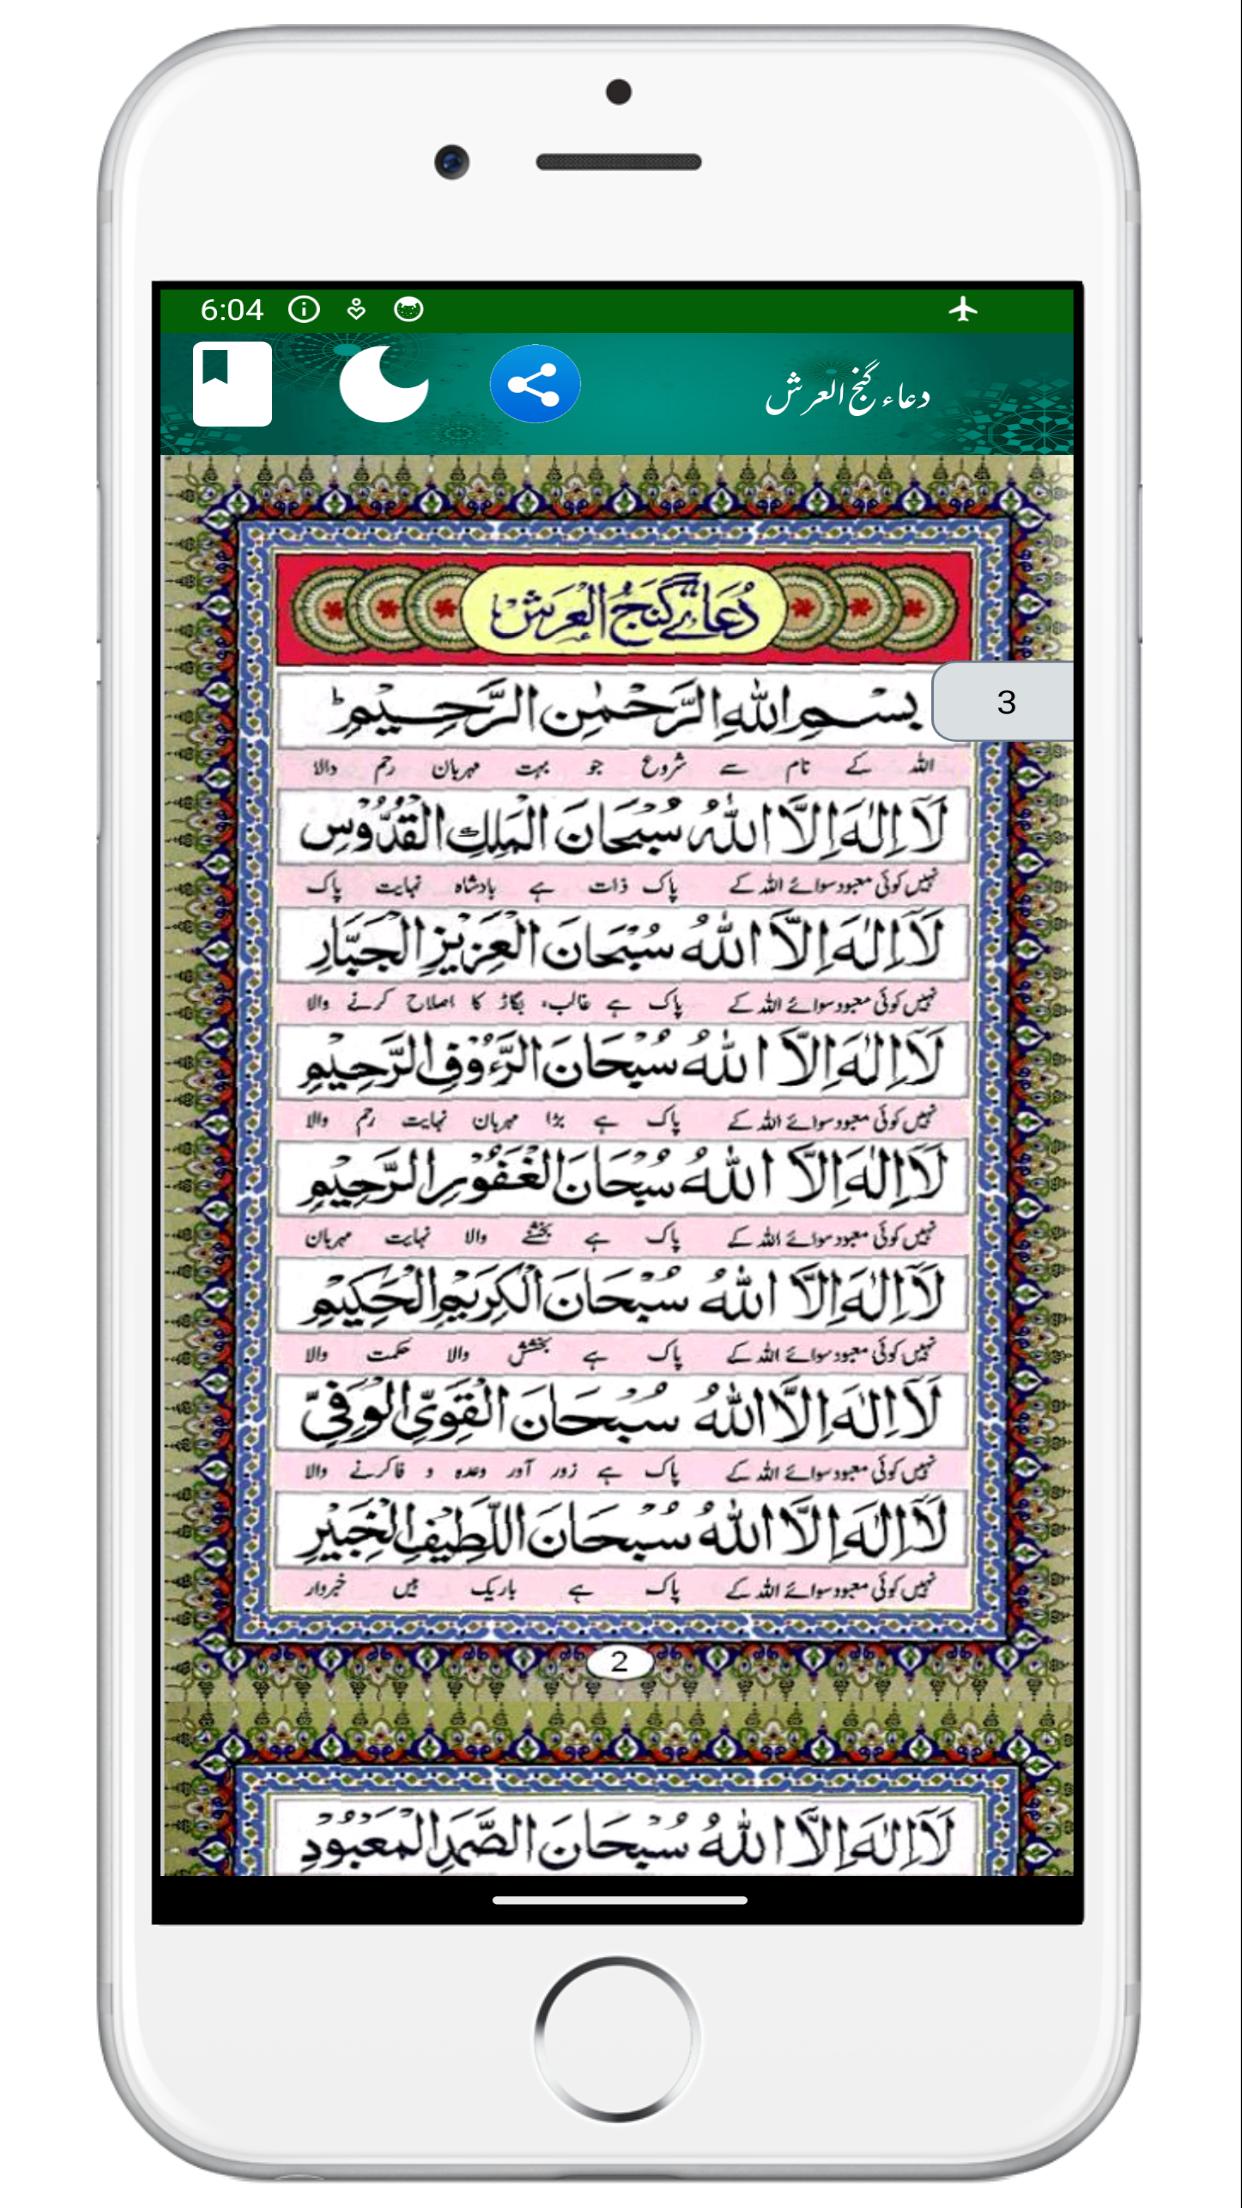 6:04
دعاء گنج العرش
دُعَائے گَنجُ الْعَرَش
3
بِسْمِ اللّٰهِ الرَّحْمٰنِ الرَّحِيْمِ ط
اللہ کے نام سے شروع جو بہت مہربان رحم والا
لَآ اِلٰهَ اِلَّا اللّٰهُ سُبْحَانَ الْمَلِكِ الْقُدُّوْسِ
نہیں کوئی معبود سوائے اللہ کے پاک ذات ہے بادشاہ نہایت پاک
لَآ اِلٰهَ اِلَّا اللّٰهُ سُبْحَانَ الْعَزِيْزِ الْجَبَّارِ
نہیں کوئی معبود سوائے اللہ کے پاک ہے غالب، بگاڑ کا اصلاح کرنے والا
لَآ اِلٰهَ اِلَّا اللّٰهُ سُبْحَانَ الرَّءُوْفِ الرَّحِيْمِ
نہیں کوئی معبود سوائے اللہ کے پاک ہے بڑا مہربان نہایت رحم والا
لَآ اِلٰهَ اِلَّا اللّٰهُ سُبْحَانَ الْغَفُوْرِ الرَّحِيْمِ
نہیں کوئی معبود سوائے اللہ کے پاک ہے بخشنے والا نہایت مہربان
لَآ اِلٰهَ اِلَّا اللّٰهُ سُبْحَانَ الْكَرِيْمِ الْحَكِيْمِ
نہیں کوئی معبود سوائے اللہ کے پاک ہے بخشش والا حکمت والا
لَآ اِلٰهَ اِلَّا اللّٰهُ سُبْحَانَ الْقَوِيِّ الْوَفِيِّ
نہیں کوئی معبود سوائے اللہ کے پاک ہے زور آور وعدہ و فاکرنے والا
لَآ اِلٰهَ اِلَّا اللّٰهُ سُبْحَانَ اللَّطِيْفِ الْخَبِيْرِ
نہیں کوئی معبود سوائے اللہ کے پاک ہے باریک بیں خبردار
2
لَآ اِلٰهَ اِلَّا اللّٰهُ سُبْحَانَ الصَّمَدِ الْمَعْبُوْدِ